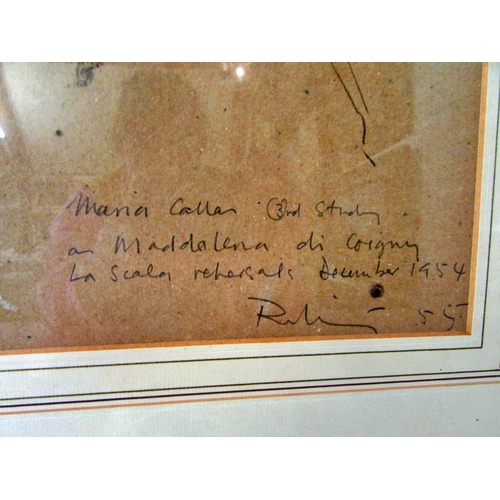 Maria Callas 3rd Study.
as Maddalena di Coigny
La Scala rehersals December 1954
55